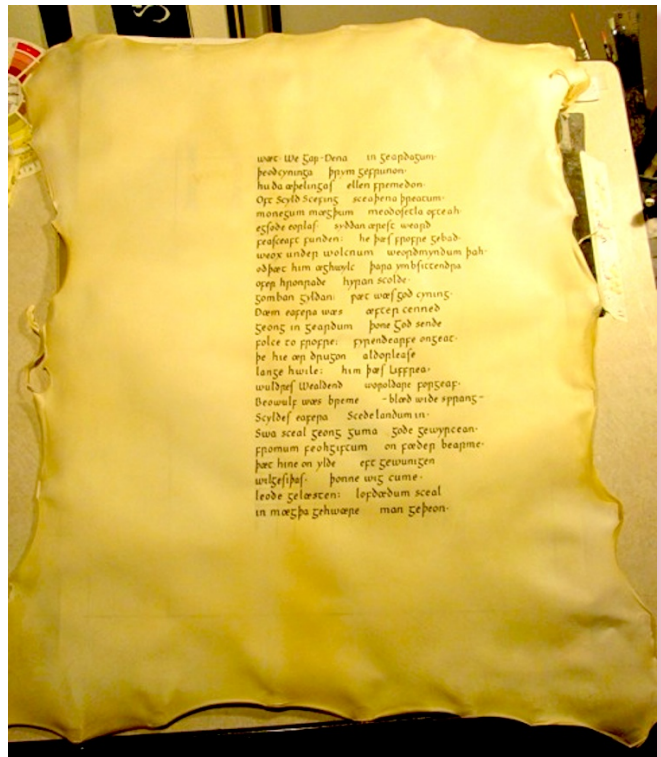 wæt· We Gar-Dena in geardagum·
þeodcyninga þrym gefrunon·
hu ða æþelingas ellen fremedon·
Oft Scyld Scefing sceaþena þreatum·
monegum mægþum meodosetla ofteah·
egsode eorlas· syððan ærest wearð
feasceaft funden: he þæs frofre gebad·
weox under wolcnum weorðmyndum þah·
oðþæt him æghwylc þara ymbsittendra
ofer hronrade hyran scolde·
gomban gyldan: þæt wæs god cyning·
Ðæm eafera wæs æfter cenned
geong in geardum þone God sende
folce to frofre: fyrenðearfe ongeat·
þe hie ær drugon aldorlease
lange hwile: him þæs Liffrea·
wuldres Wealdend woroldare forgeaf·
Beowulf wæs breme -blæd wide sprang-
Scyldes eafera Scedelandum in·
Swa sceal geong guma gode gewyrcean·
fromum feohgiftum on fæder bearme·
þæt hine on ylde eft gewunigen
wilgesiþas· þonne wig cume·
leode gelæsten: lofdædum sceal
in mægþa gehwære man geþeon·